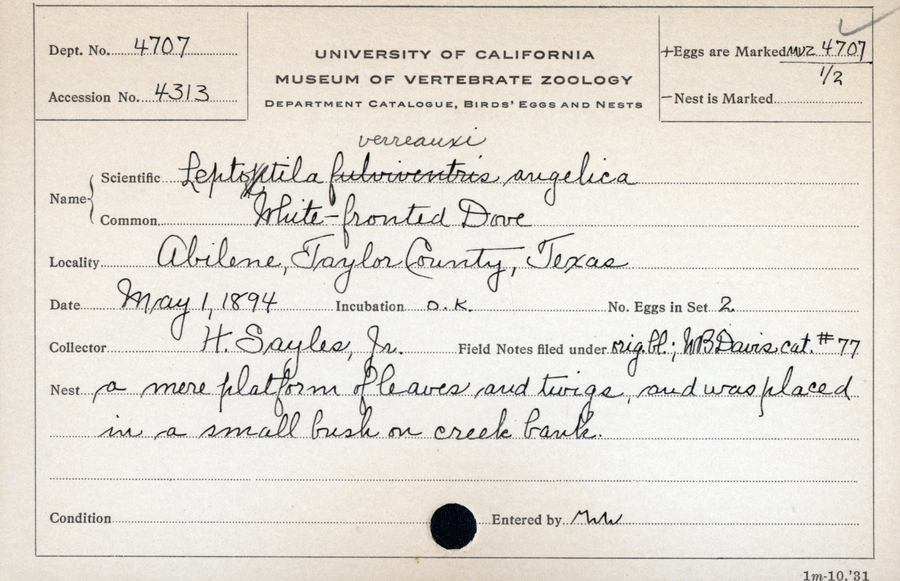 Dept. No. 4707
Accession No. 4313
UNIVERSITY OF CALIFORNIA
MUSEUM OF VERTEBRATE ZOOLOGY
DEPARTMENT CATALOGUE, BIRDS' EGGS AND NESTS
+Eggs are Marked MVZ 4707
1/2
—Nest is Marked
verreauxi
Name Scientific Leptotila fulviventris angelica
Common White-fronted Dove
Locality Abilene, Taylor County, Texas
Date May 1, 1894 Incubation O.K. No. Eggs in Set 2
Collector H. Sayles, Jr. Field Notes filed under orig. bl.; WB Davis cat. #77
Nest a mere platform of leaves and twigs, and was placed
in a small bush on creek bank.
Condition Entered by
1m-10,'31